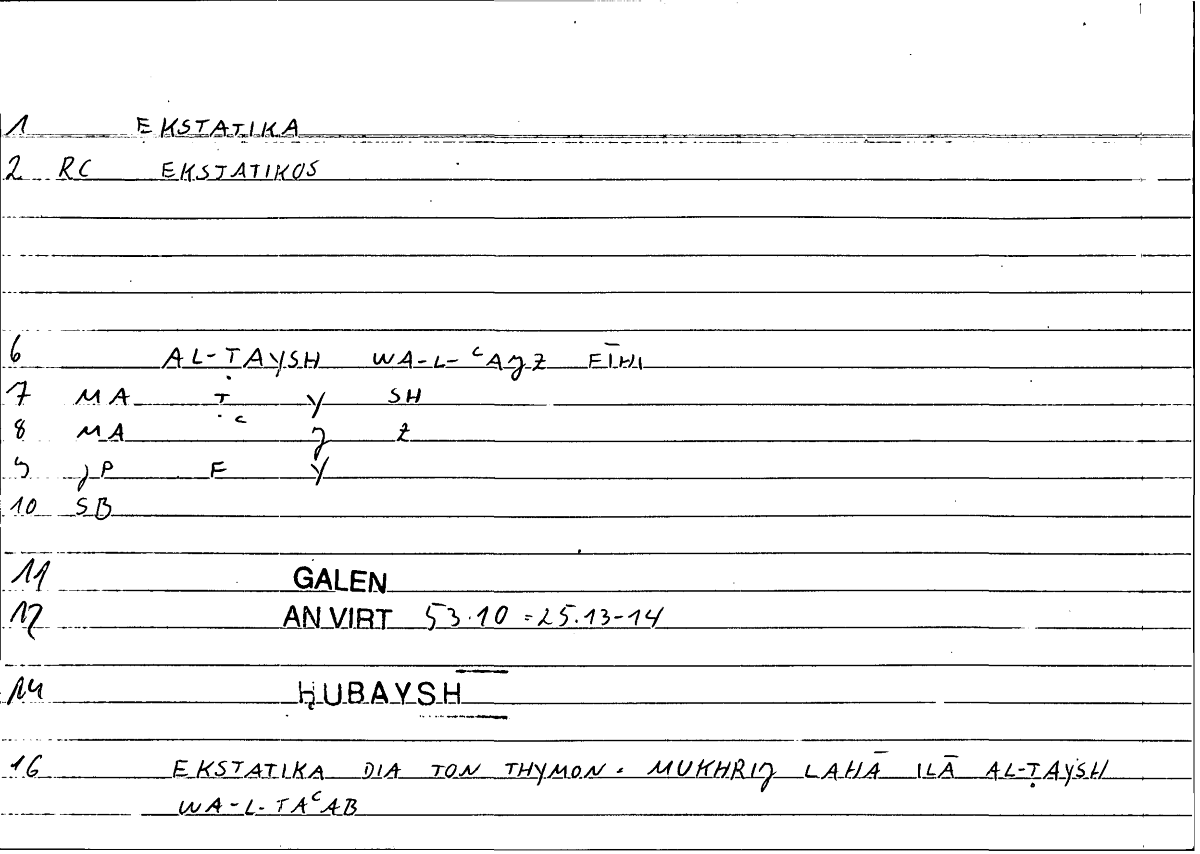 1 EKSTATIKA
2 RC EKSTATIKOS
6 AL-ṬAYSH WA-L-ᶜAJZ FĪHI
7 MA Ṭ Y SH
8 MA ᶜ J Z
9 JP F Y
10 SB
11 GALEN
12 AN VIRT 53.10 = 25.13-14
14 ḤUBAYSH
16 EKSTATIKA DIA TON THYMON. MUKHRIJ LAHĀ ILĀ AL-ṬAYSH
WA-L-TAᶜAB